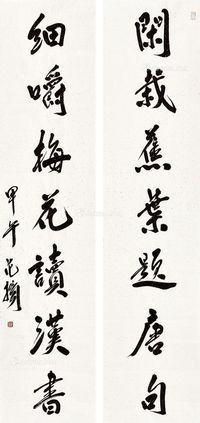 閑裁蕉葉題唐句
細嚼梅花讀漢書
甲午 范揚